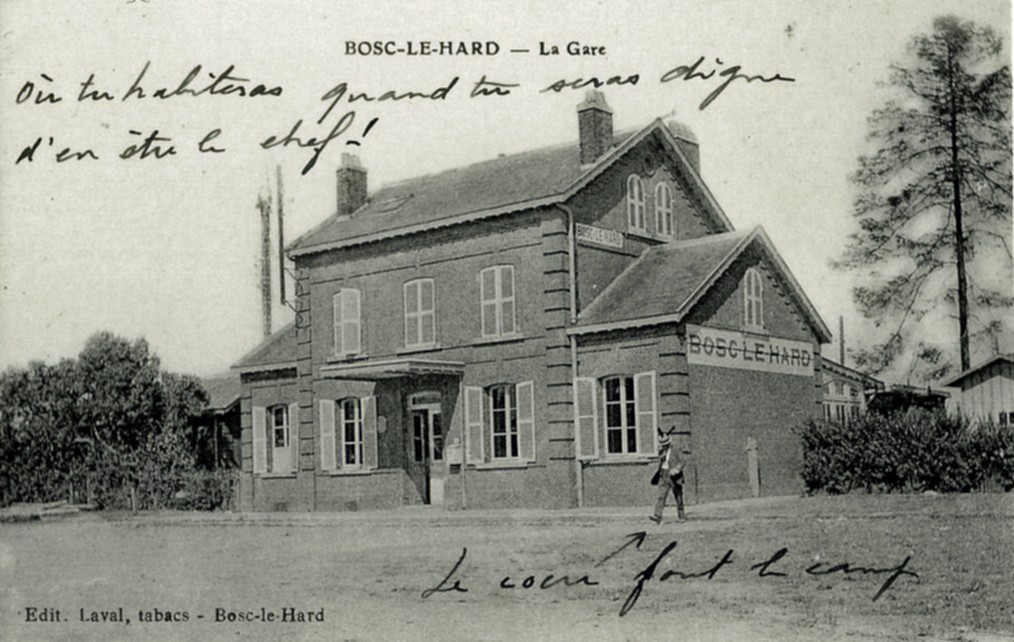 BOSC-LE-HARD — La Gare
Où tu habiteras quand tu seras digne
d'en être le chef!
BOSC-LE-HARD
BOSC-LE-HARD
Le cocu fout le camp
Edit. Laval, tabacs - Bosc-le-Hard